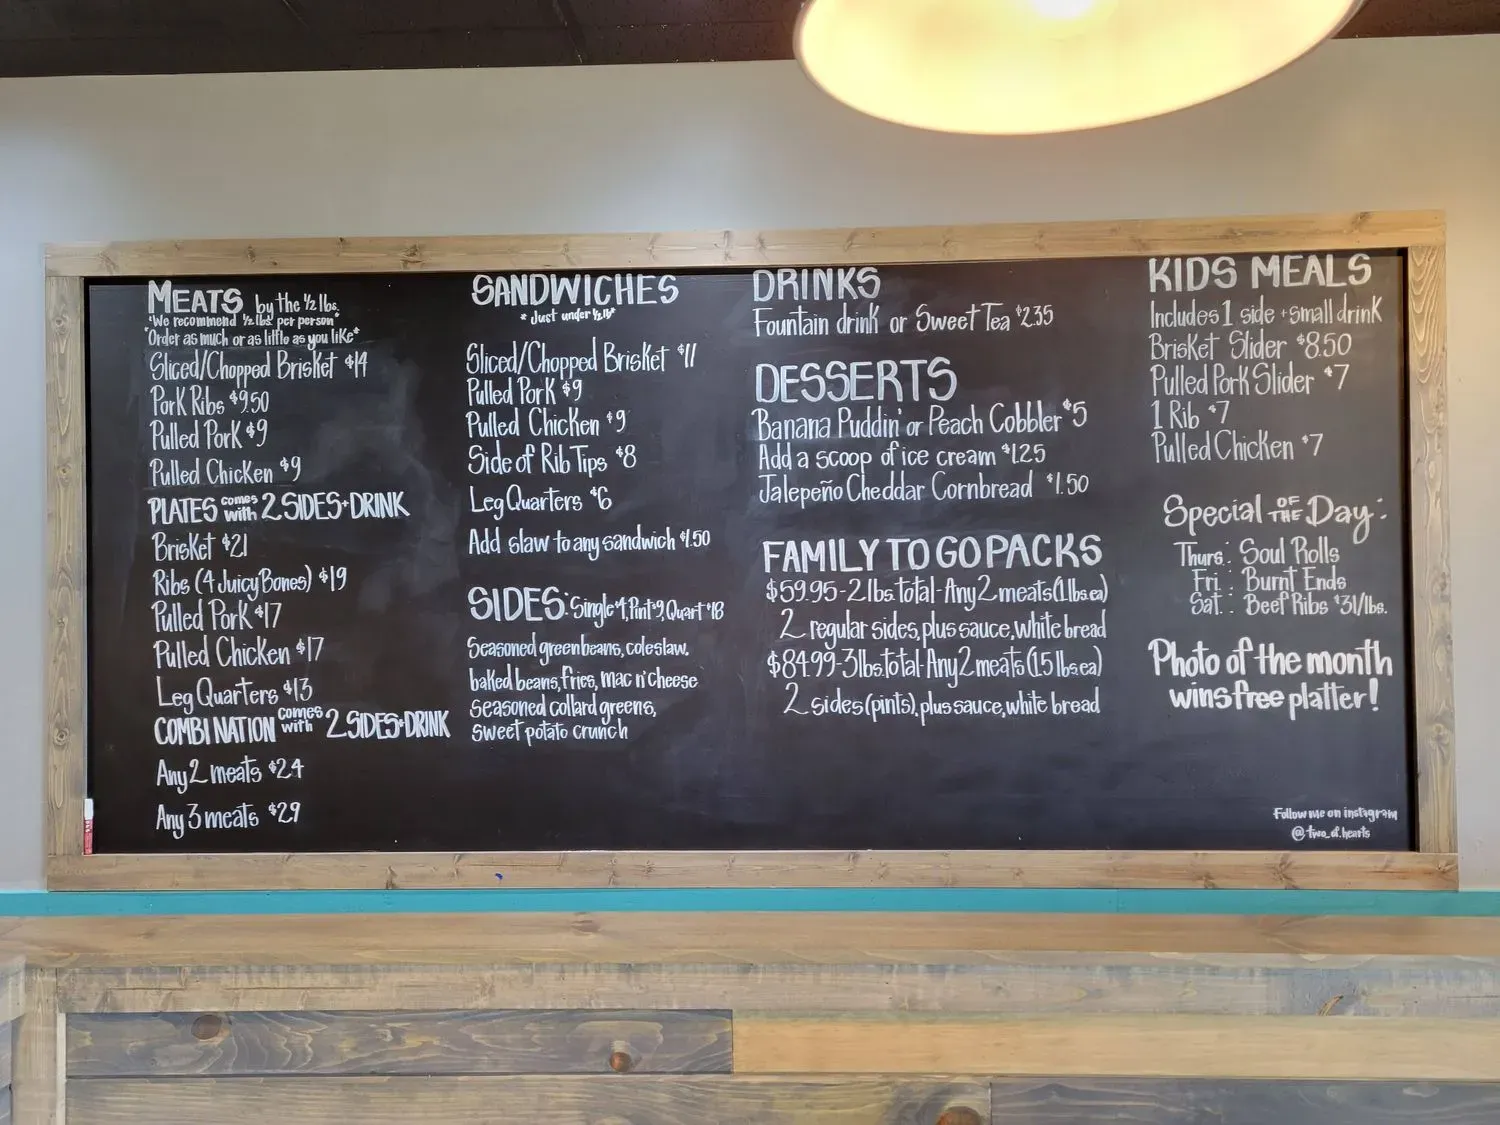 MEATS by the ½ lbs.
"We recommend ½ lbs. per person"
"Order as much or as little as you like"
Sliced/Chopped Brisket $14
Pork Ribs $9.50
Pulled Pork $9
Pulled Chicken $9
PLATES comes with 2 SIDES+DRINK
Brisket $21
Ribs (4 Juicy Bones) $19
Pulled Pork $17
Pulled Chicken $17
Leg Quarters $13
COMBINATION comes with 2 SIDES+DRINK
Any 2 meats $24
Any 3 meats $29
SANDWICHES
* Just under ½ lb*
Sliced/Chopped Brisket $11
Pulled Pork $9
Pulled Chicken $9
Side of Rib Tips $8
Leg Quarters $6
Add slaw to any sandwich $1.50
SIDES: Single $4, Pint $9, Quart $18
Seasoned green beans, coleslaw,
baked beans, fries, mac n' cheese
Seasoned collard greens,
sweet potato crunch
DRINKS
Fountain drink or Sweet Tea $2.35
DESSERTS
Banana Puddin' or Peach Cobbler $5
Add a scoop of ice cream $1.25
Jalepeño Cheddar Cornbread $1.50
FAMILY TO GO PACKS
$59.95-2 lbs. total-Any 2 meats (1 lbs. ea)
2 regular sides, plus sauce, white bread
$84.99-3 lbs. total-Any 2 meats (1.5 lbs. ea)
2 sides (pints), plus sauce, white bread
KIDS MEALS
Includes 1 side + small drink
Brisket Slider $8.50
Pulled Pork Slider $7
1 Rib $7
Pulled Chicken $7
Special OF THE Day:
Thurs.: Soul Rolls
Fri.: Burnt Ends
Sat.: Beef Ribs $31/lbs.
Photo of the month
wins free platter!
Follow me on instagram
@two_of.hearts